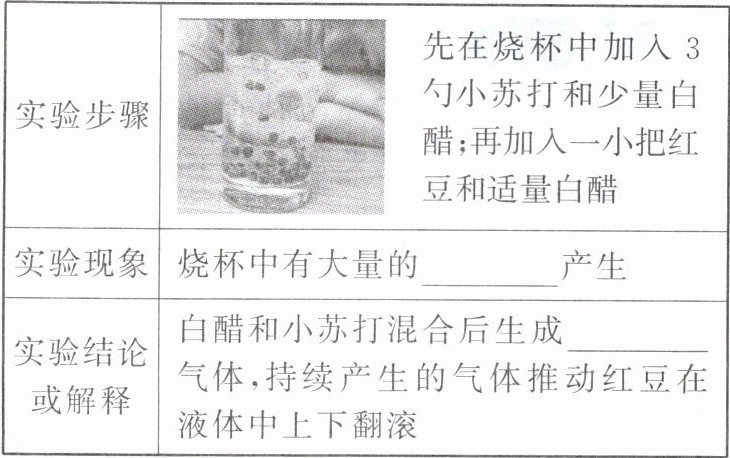 实验步骤
先在烧杯中加入 3
勺小苏打和少量白
醋;再加入一小把红
豆和适量白醋
实验现象
烧杯中有大量的________产生
实验结论
或解释
白醋和小苏打混合后生成________
气体,持续产生的气体推动红豆在
液体中上下翻滚